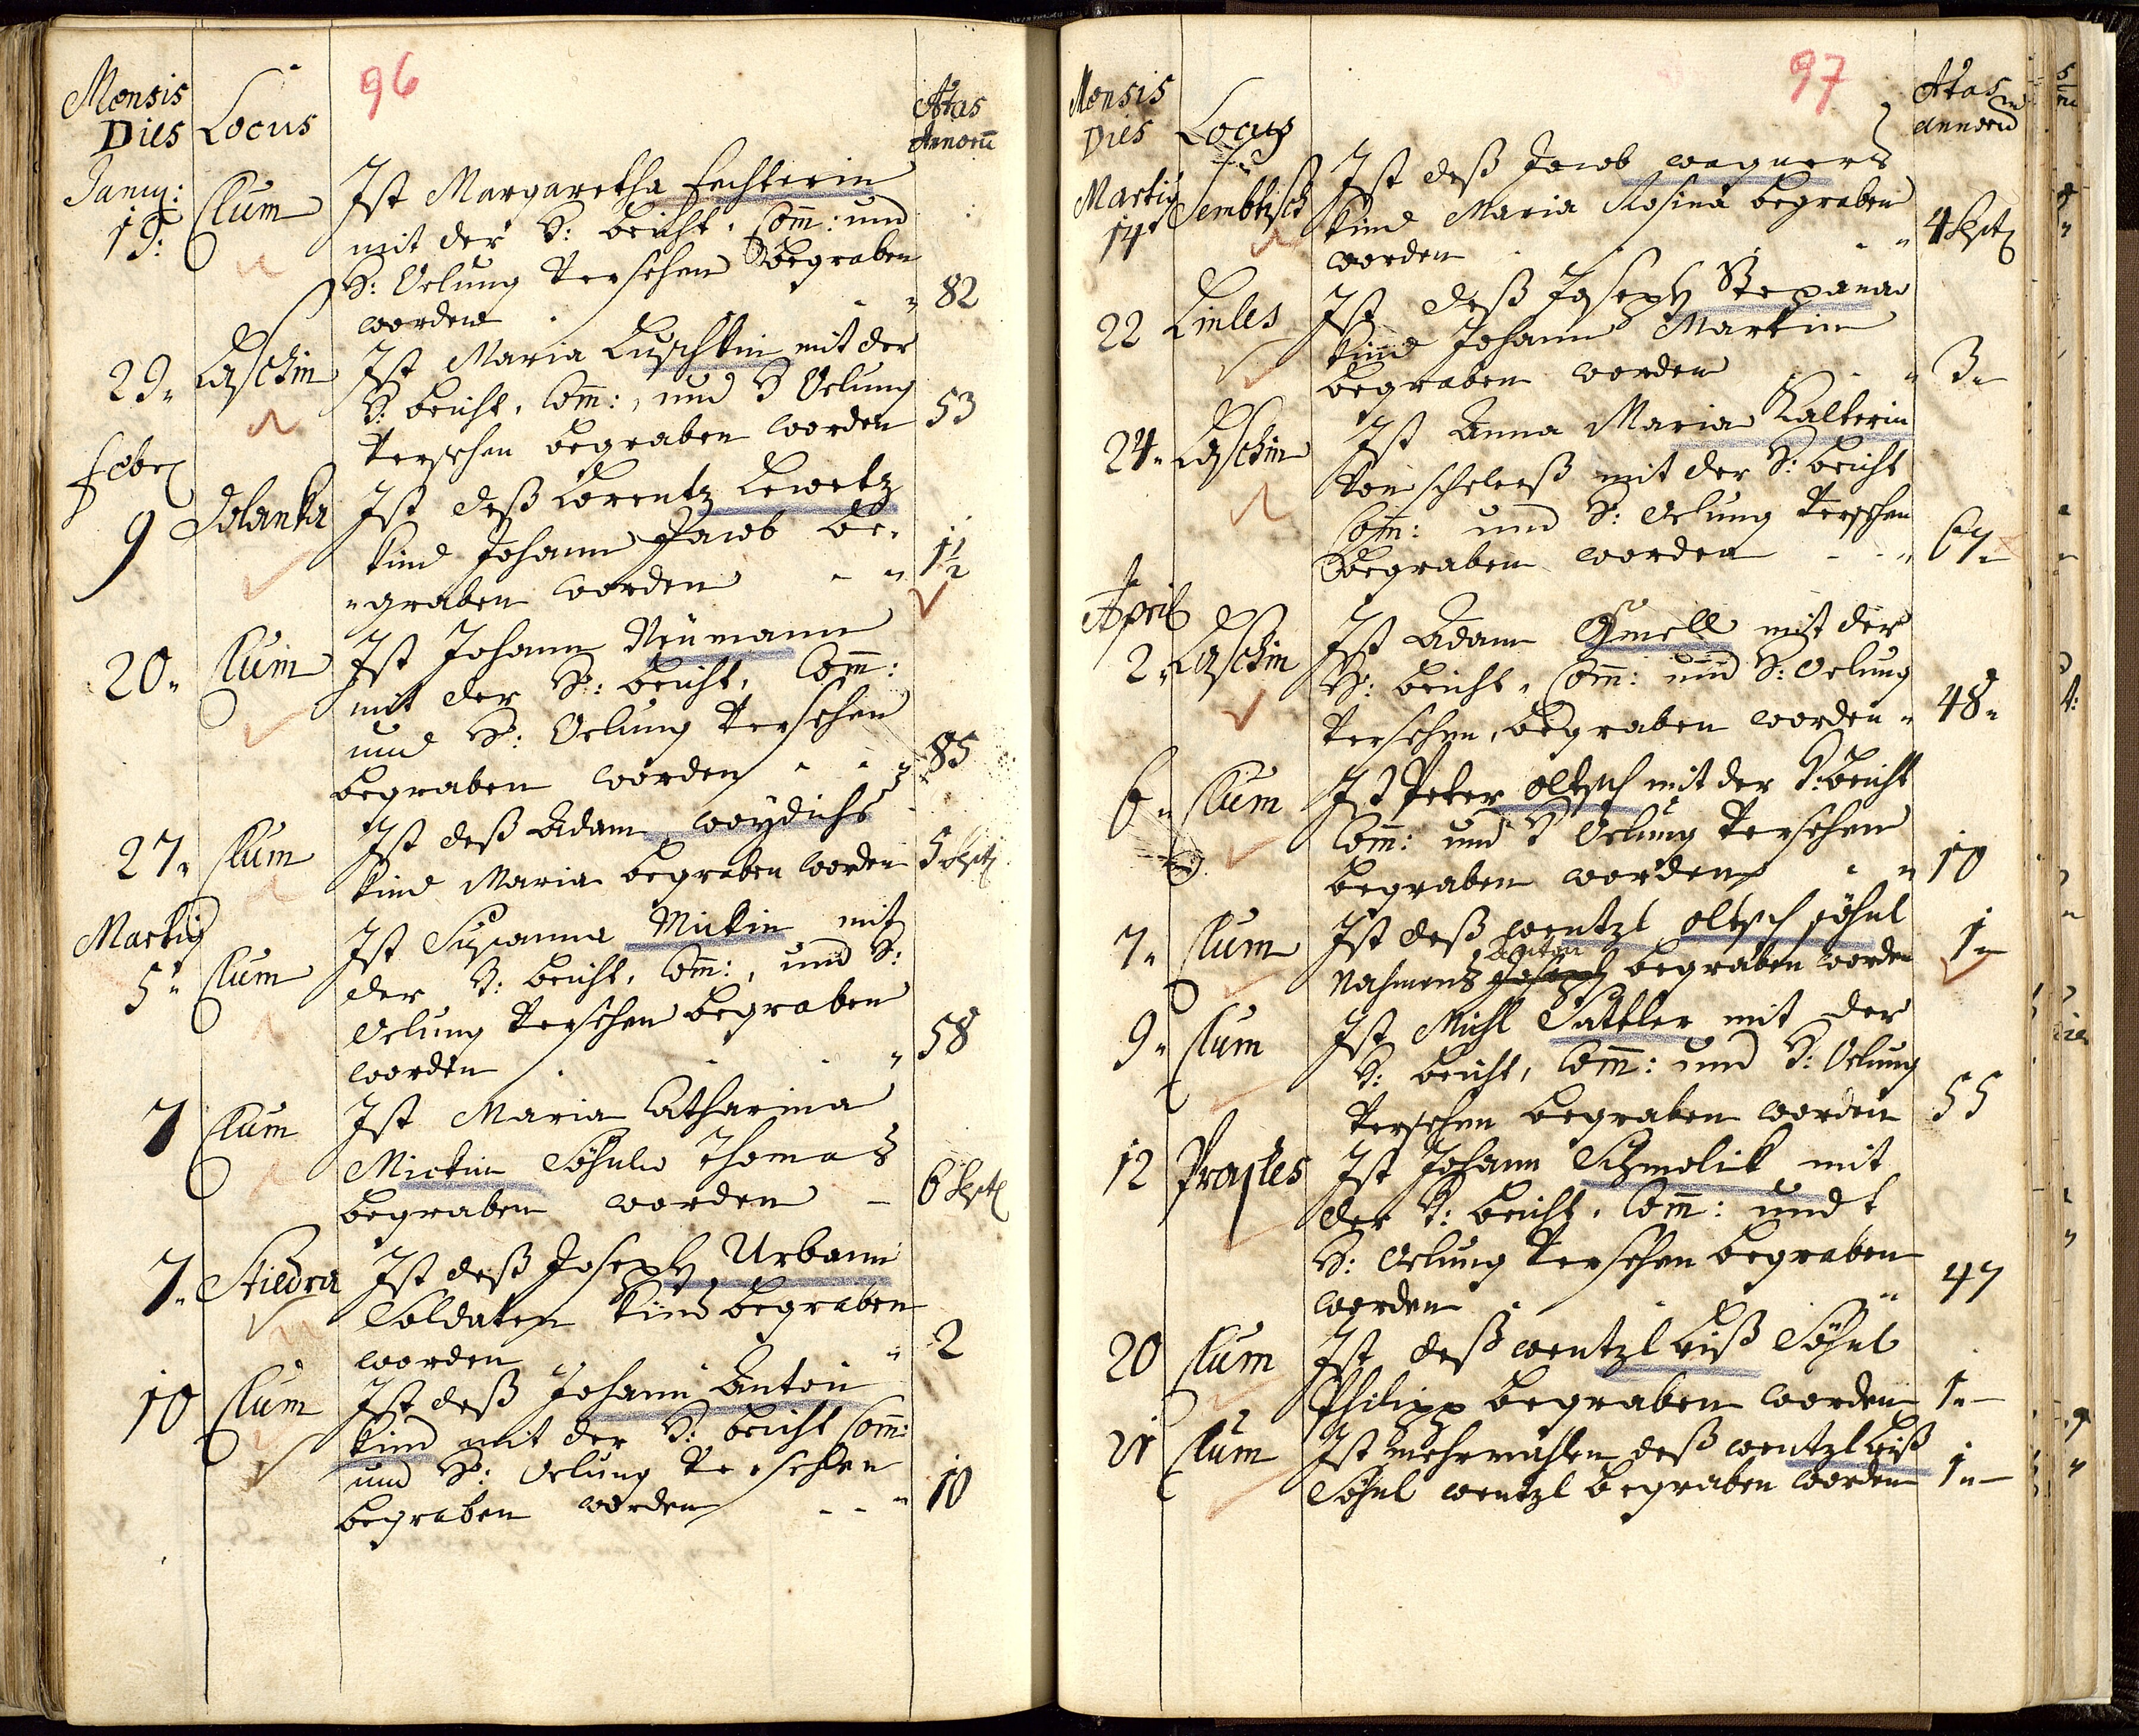 96
Mensis
Dies Locus
Ætas
Annorū
Januy:
19: Clum Ist Margaretha Fechterin
mit der H: beicht, Com̄: und
H: Oelung Versehen begraben
worden 82
29. Laschin Ist Maria mit der
H: beicht, Com̄:, und H Oelung
Versehen begraben worden 53
Feber
9 Polanka Ist deß Lorentz Lewetz
kind Johann Jacob be-
graben worden 1½
20. Clum Ist Johann Neümann
mit der H: beicht, Com̄:
und H: Oelung Versehen
begraben worden 85
27. Clum Ist deß Adam woydichs
kind Maria begraben worden 5
Martij
5. Clum Ist Susanna Mickin mit
der H: beicht, Com̄:, und H:
Oelung Versehen begraben
worden 58
7 Clum Ist Maria Catharina
Mickin Söhnle Thomas
begraben worden 6
7. Stiedra Ist deß Joseph Urbann
Soldaten kind begraben
worden 2
10 Clum Ist deß Johann Anton
kind mit der H: beicht Com̄:
und H: Oelung Versehen
begraben worden 10
97
Mensis
Dies Locus
Ætas
annorū
Martij
14 Sembtisch Ist deß Jacob wagners
kind Maria Rosina begraben
worden 4
22 Linles Ist deß Joseph Stepanao
kind Johann Martin
begraben worden 3
24. Laschin Ist Anna Maria Kalterin
von mit der H: beicht
Com̄: und H: Oelung Versehen
begraben worden 67
April
2. Laschin Ist Adam Gmell mit der
H: beicht, Com̄: und H: Oelung
Versehen, begraben worden 48
6. Clum Ist Peter Oltsch mit der H: beicht
Com̄: und H Oelung Versehen
begraben worden 10
7. Clum Ist deß wentzl oltsch söhnl
Anton
Nahmens Joseph begraben worden 1
9. Clum Ist Michl Sattler mit der
H: beicht, Com̄: und H: Oelung
Versehen begraben worden 55
12 Prohles Ist Johann Schmolik mit
der H: beicht, Com̄: und
H: Oelung Versehen begraben
worden 47
20 Clum Ist deß wentzl Liß Söhnl
Philipp begraben worden 1
21 Clum Ist mehrmahlen deß wentzl Liß
Söhnl wentzl begraben worden 1